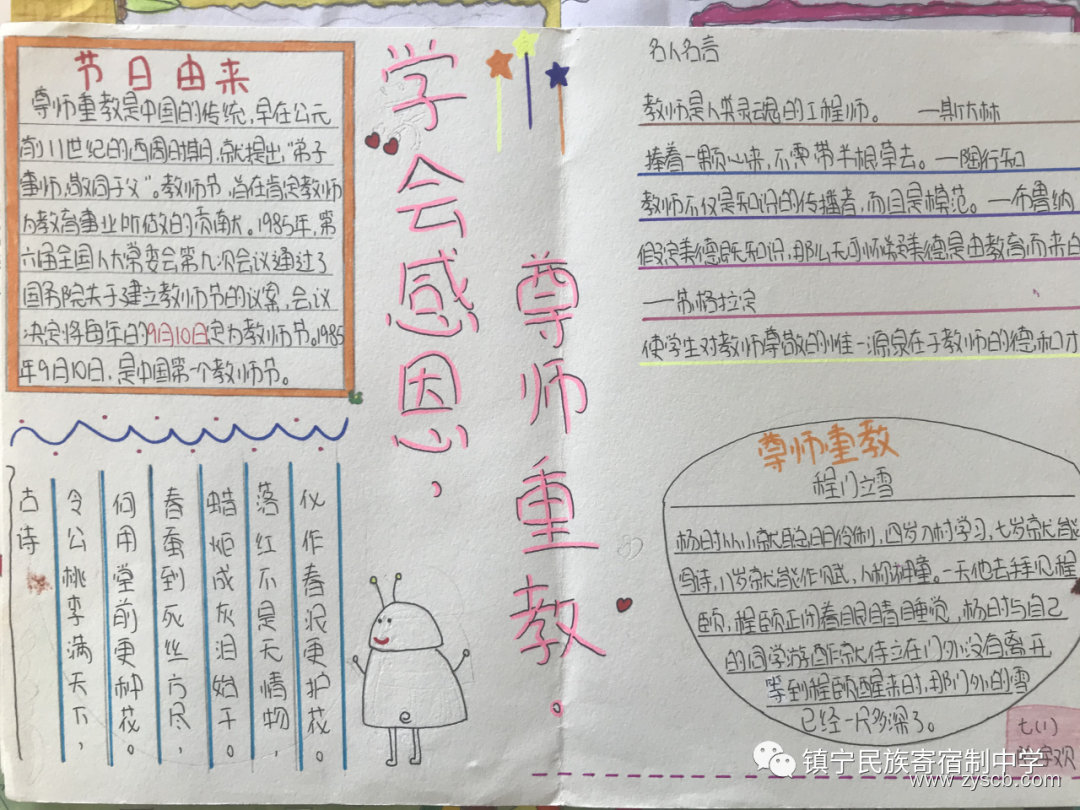 节日由来
尊师重教是中国的传统,早在公元
前11世纪的西周时期,就提出“弟子
事师,敬同于父”。教师节,旨在肯定教师
为教育事业所做的贡献。1985年,第
六届全国人大常委会第九次会议通过了
国务院关于建立教师节的议案,会议
决定将每年的9月10日定为教师节。1985
年9月10日,是中国第一个教师节。
学会感恩,
尊师重教。
名人名言
教师是人类灵魂的工程师。 ——斯大林
捧着一颗心来,不带半根草去。——陶行知
教师不仅是知识的传播者,而且是模范。——布鲁纳
假定美德既知识,那么无可怀疑美德是由教育而来的
——苏格拉底
使学生对教师尊敬的惟一源泉在于教师的德和才
古诗
令公桃李满天下,
何用堂前更种花。
春蚕到死丝方尽,
蜡炬成灰泪始干。
落红不是无情物,
化作春泥更护花。
尊师重教
程门立雪
杨时从小就聪明伶俐,四岁入村学习,七岁就能
写诗,八岁就能作赋,人称神童。一天他去拜见程
颐,程颐正闭着眼睛睡觉,杨时与自己
的同学游酢就侍立在门外没有离开
等到程颐醒来时,那门外的雪
已经一尺多深了。
七(1)
镇宁民族寄宿制中学
www.zyscb.com